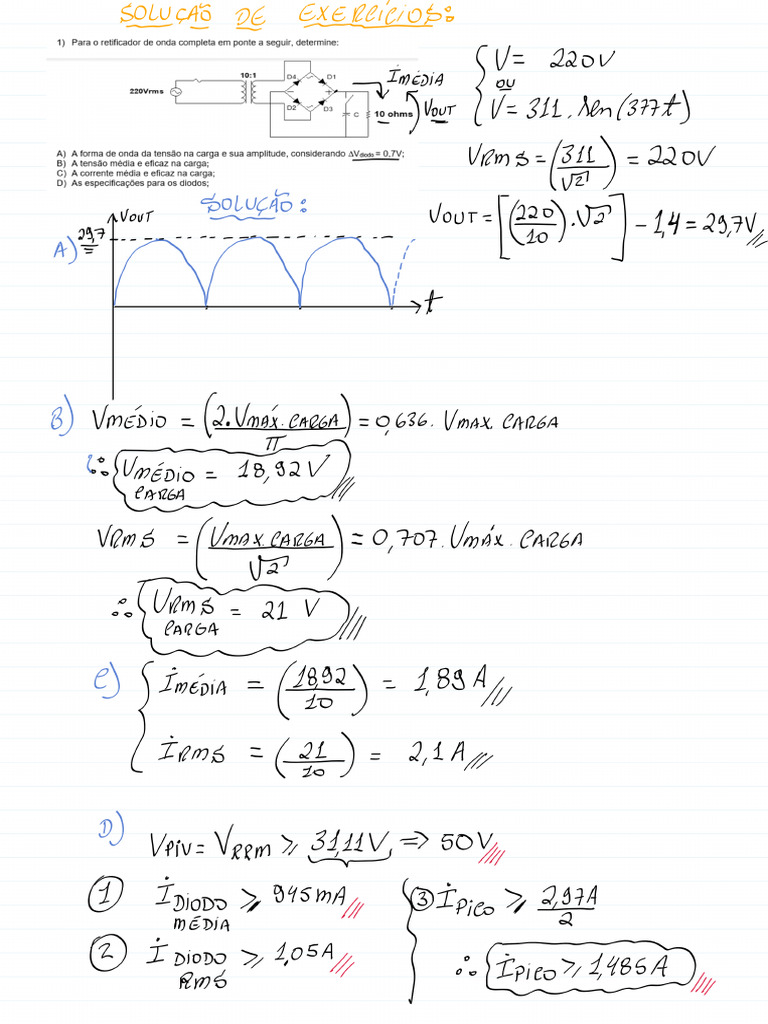 SOLUÇÃO DE EXERCÍCIOS:
1) Para o retificador de onda completa em ponte a seguir, determine:
220Vrms
10:1
D4
D1
D2
D3
C
10 ohms
İMÉDIA
VOUT
V = 220V
OU
V = 311 . Sen(377t)
A) A forma de onda da tensão na carga e sua amplitude, considerando ΔVdiodo = 0,7V;
B) A tensão média e eficaz na carga;
C) A corrente média e eficaz na carga;
D) As especificações para os diodos;
VRMS = (311/√2) = 220V
SOLUÇÃO:
VOUT = [(220/10) . √2] - 1,4 = 29,7V
A)
VOUT
29,7
t
B) VMÉDIO = (2.VMÁX.CARGA/π) = 0,636. VMAX. CARGA
∴ VMÉDIO CARGA = 18,92V
VRMS = (VMAX.CARGA/√2) = 0,707. VMÁX. CARGA
∴ VRMS CARGA = 21 V
C) İMÉDIA = (18,92/10) = 1,89A
İRMS = (21/10) = 2,1A
D) VPIV = VRRM ≥ 31,11V => 50V
1 İDIODO MÉDIA ≥ 945mA
2 İDIODO RMS ≥ 1,05A
3 İPICO ≥ 2,97A/2
∴ İPICO ≥ 1,485A